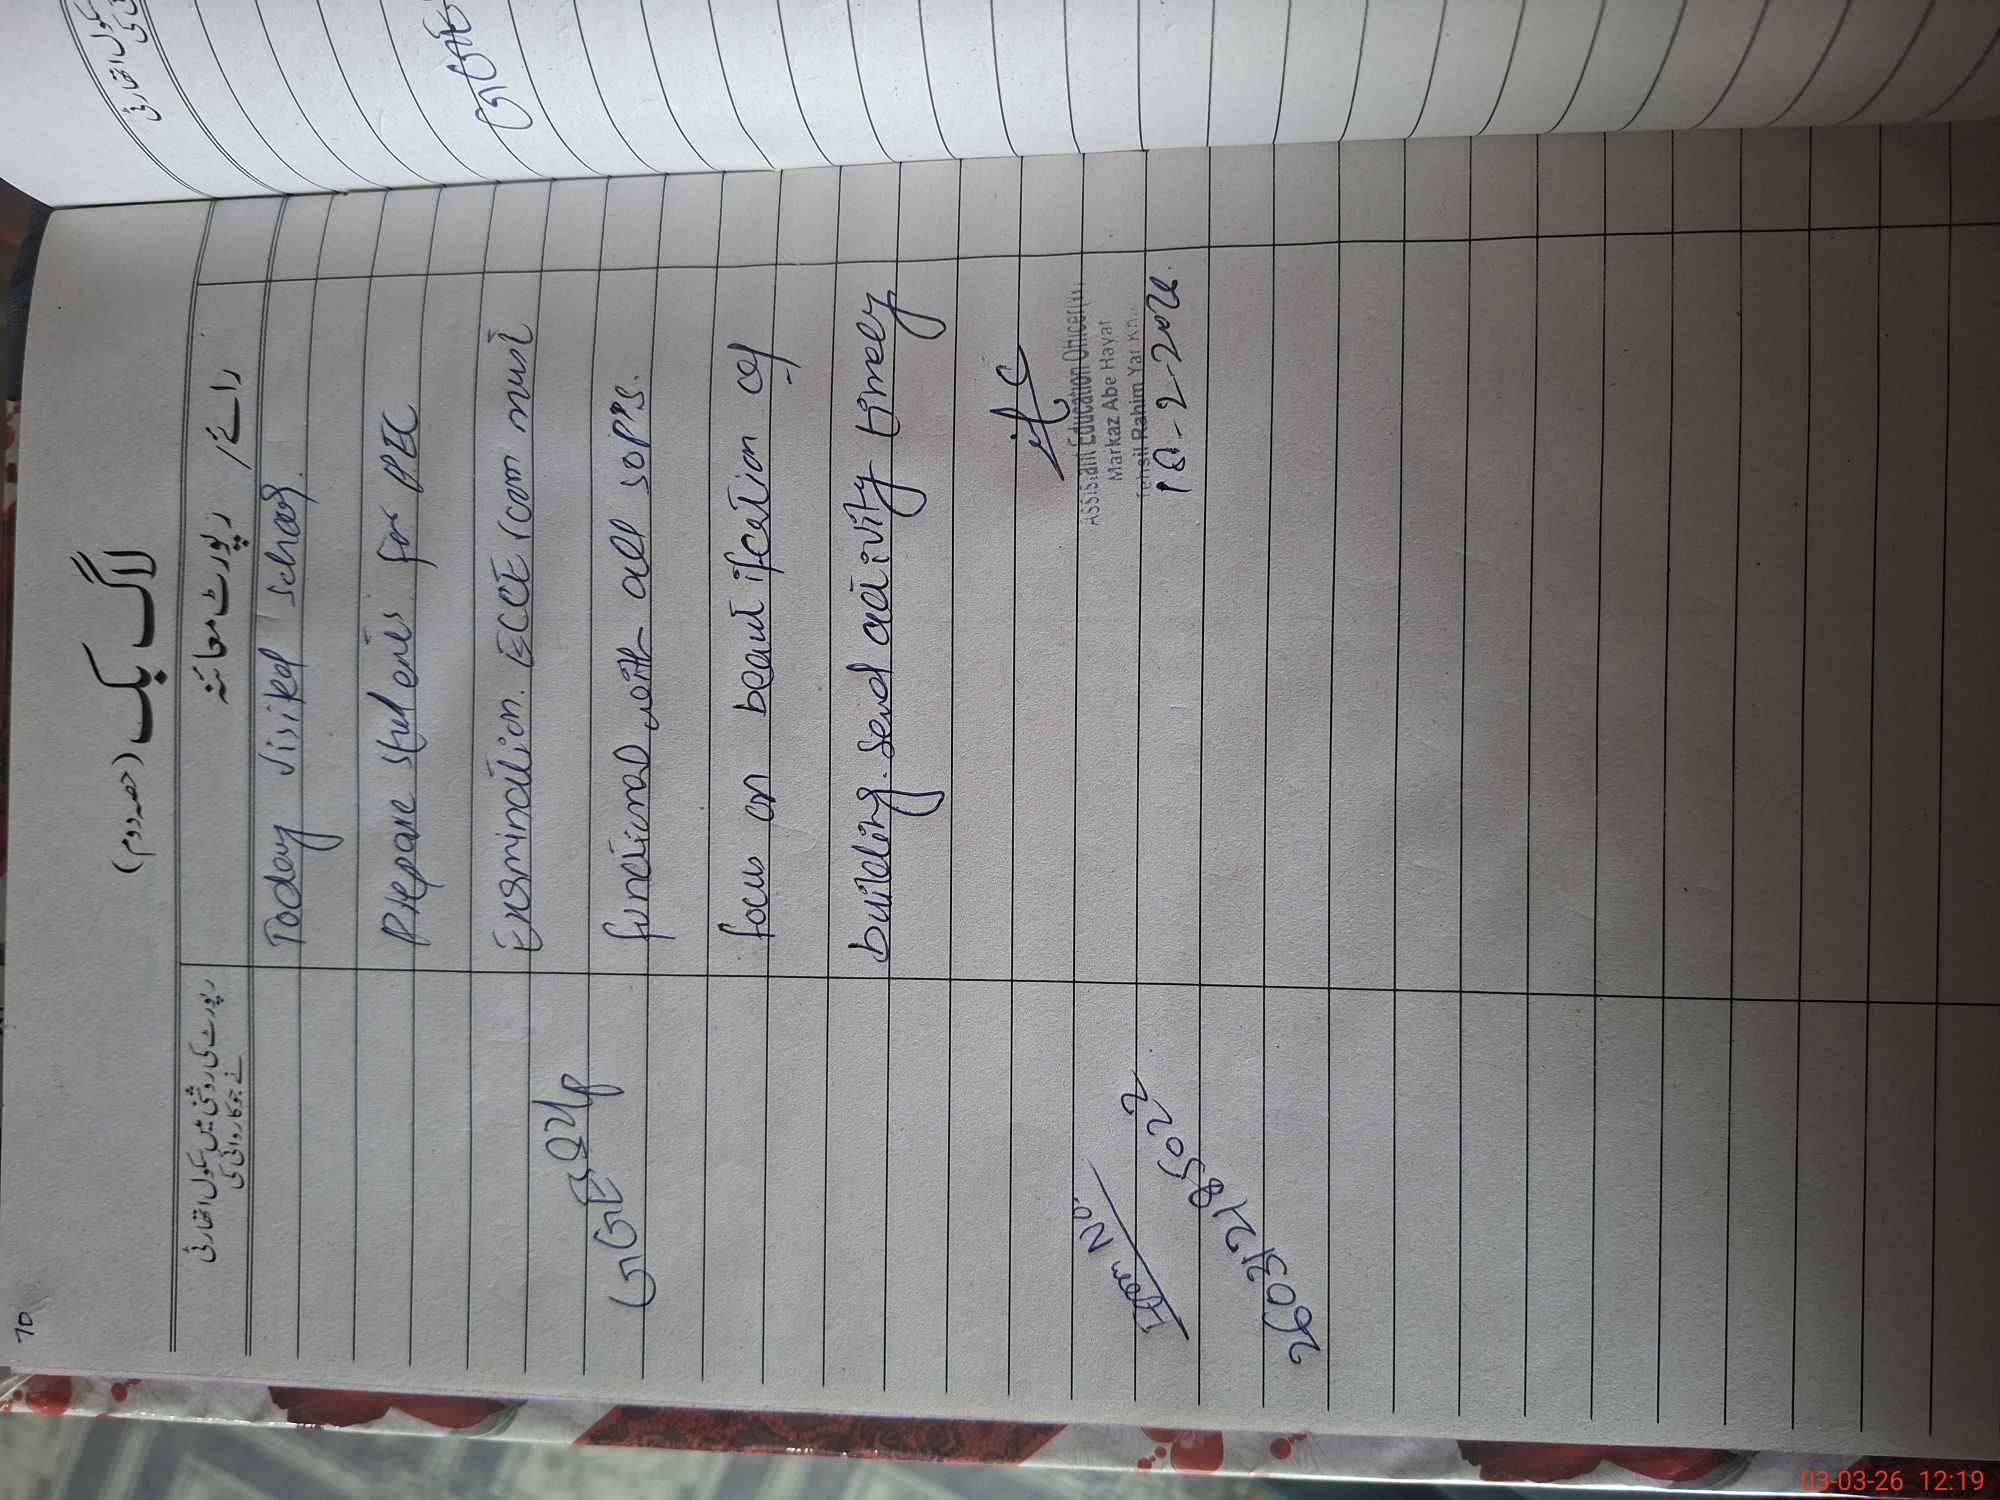 70
لاگ بک (حصہ دوم)
رپورٹ کی روشنی میں سکول اتھارٹی
نے جو کاروائی کی
رپورٹ معائنہ / رائے
Today visited school.
Prepare students for PEC
Examination. ECCE room must
functional with all SOP's.
focus on beautification of
building. send activity timely
Assistant Education Officer
Markaz Abe Hayat
Tehsil Rahim Yar Khan
10-2-2026.
Item No.
سکول اتھارٹی
03-03-26 12:19